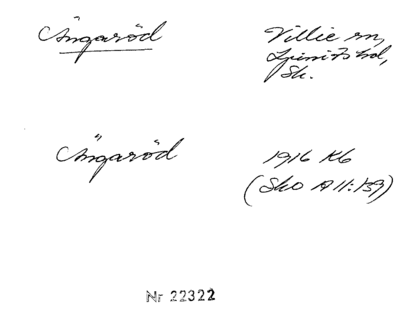 Ängaröd
Villie sn,
Ljunits hd,
Sk.
Ängaröd
1916 Kb
(Sko A II:159)
Nr 22322